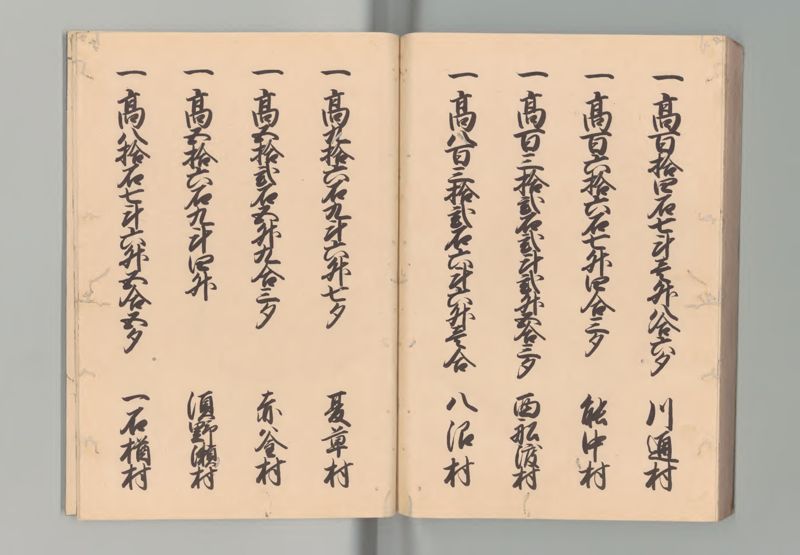 一高百拾四石七斗壱升八合六夕 川通村
一高百六拾六石七升四合三夕 能中村
一高百三拾弐石弐斗弐升五合三夕 西船渡村
一高八百三拾弐石六斗六升壱合 八沼村
一高九拾六石九斗六升七夕 夏草村
一高五拾弐石五升九合三夕 赤釜村
一高五拾六石九斗四升 須野瀬村
一高八拾石七斗六升五合五夕 一石楢村